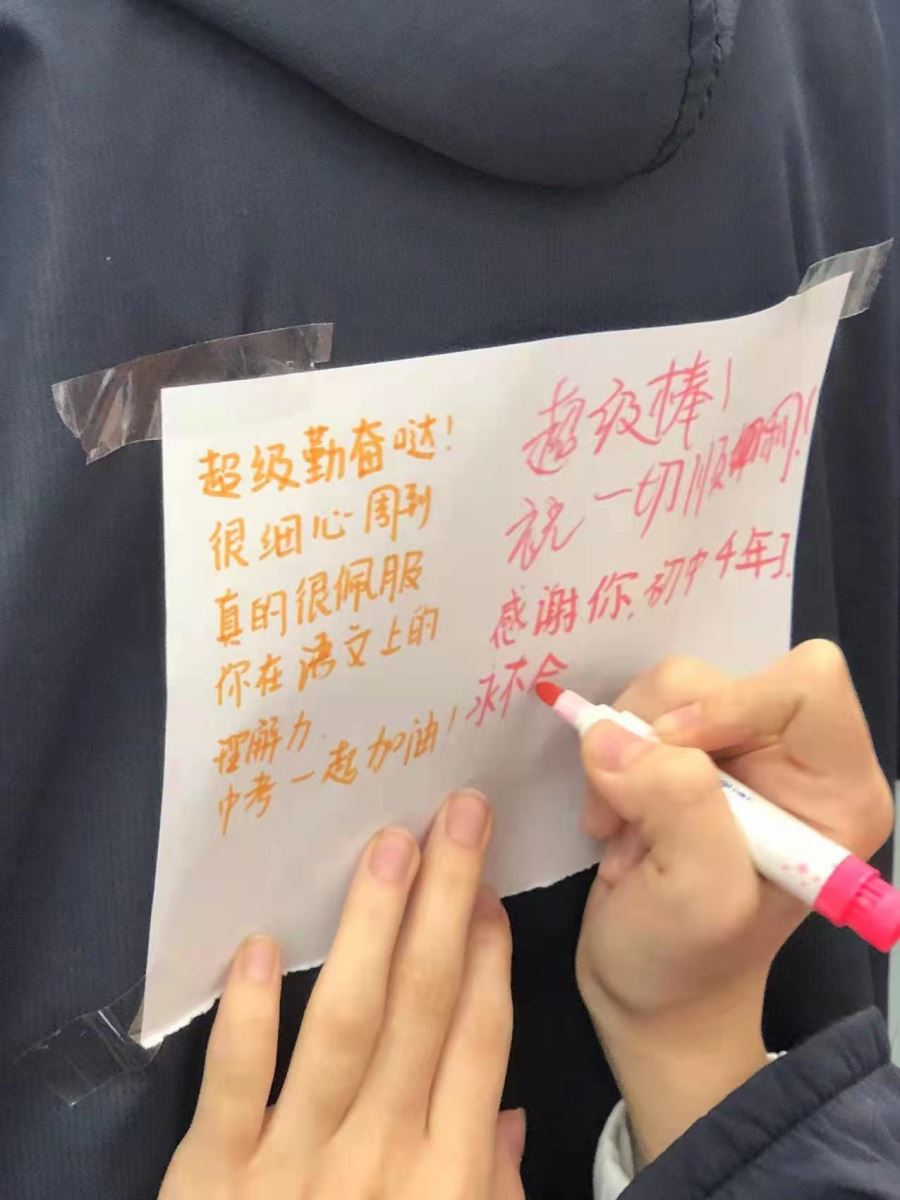 超级勤奋哒!
很细心周到
真的很佩服
你在语文上的
理解力.
中考一起加油!
超级棒!
祝一切顺
感谢你.初中4年了.
永不会